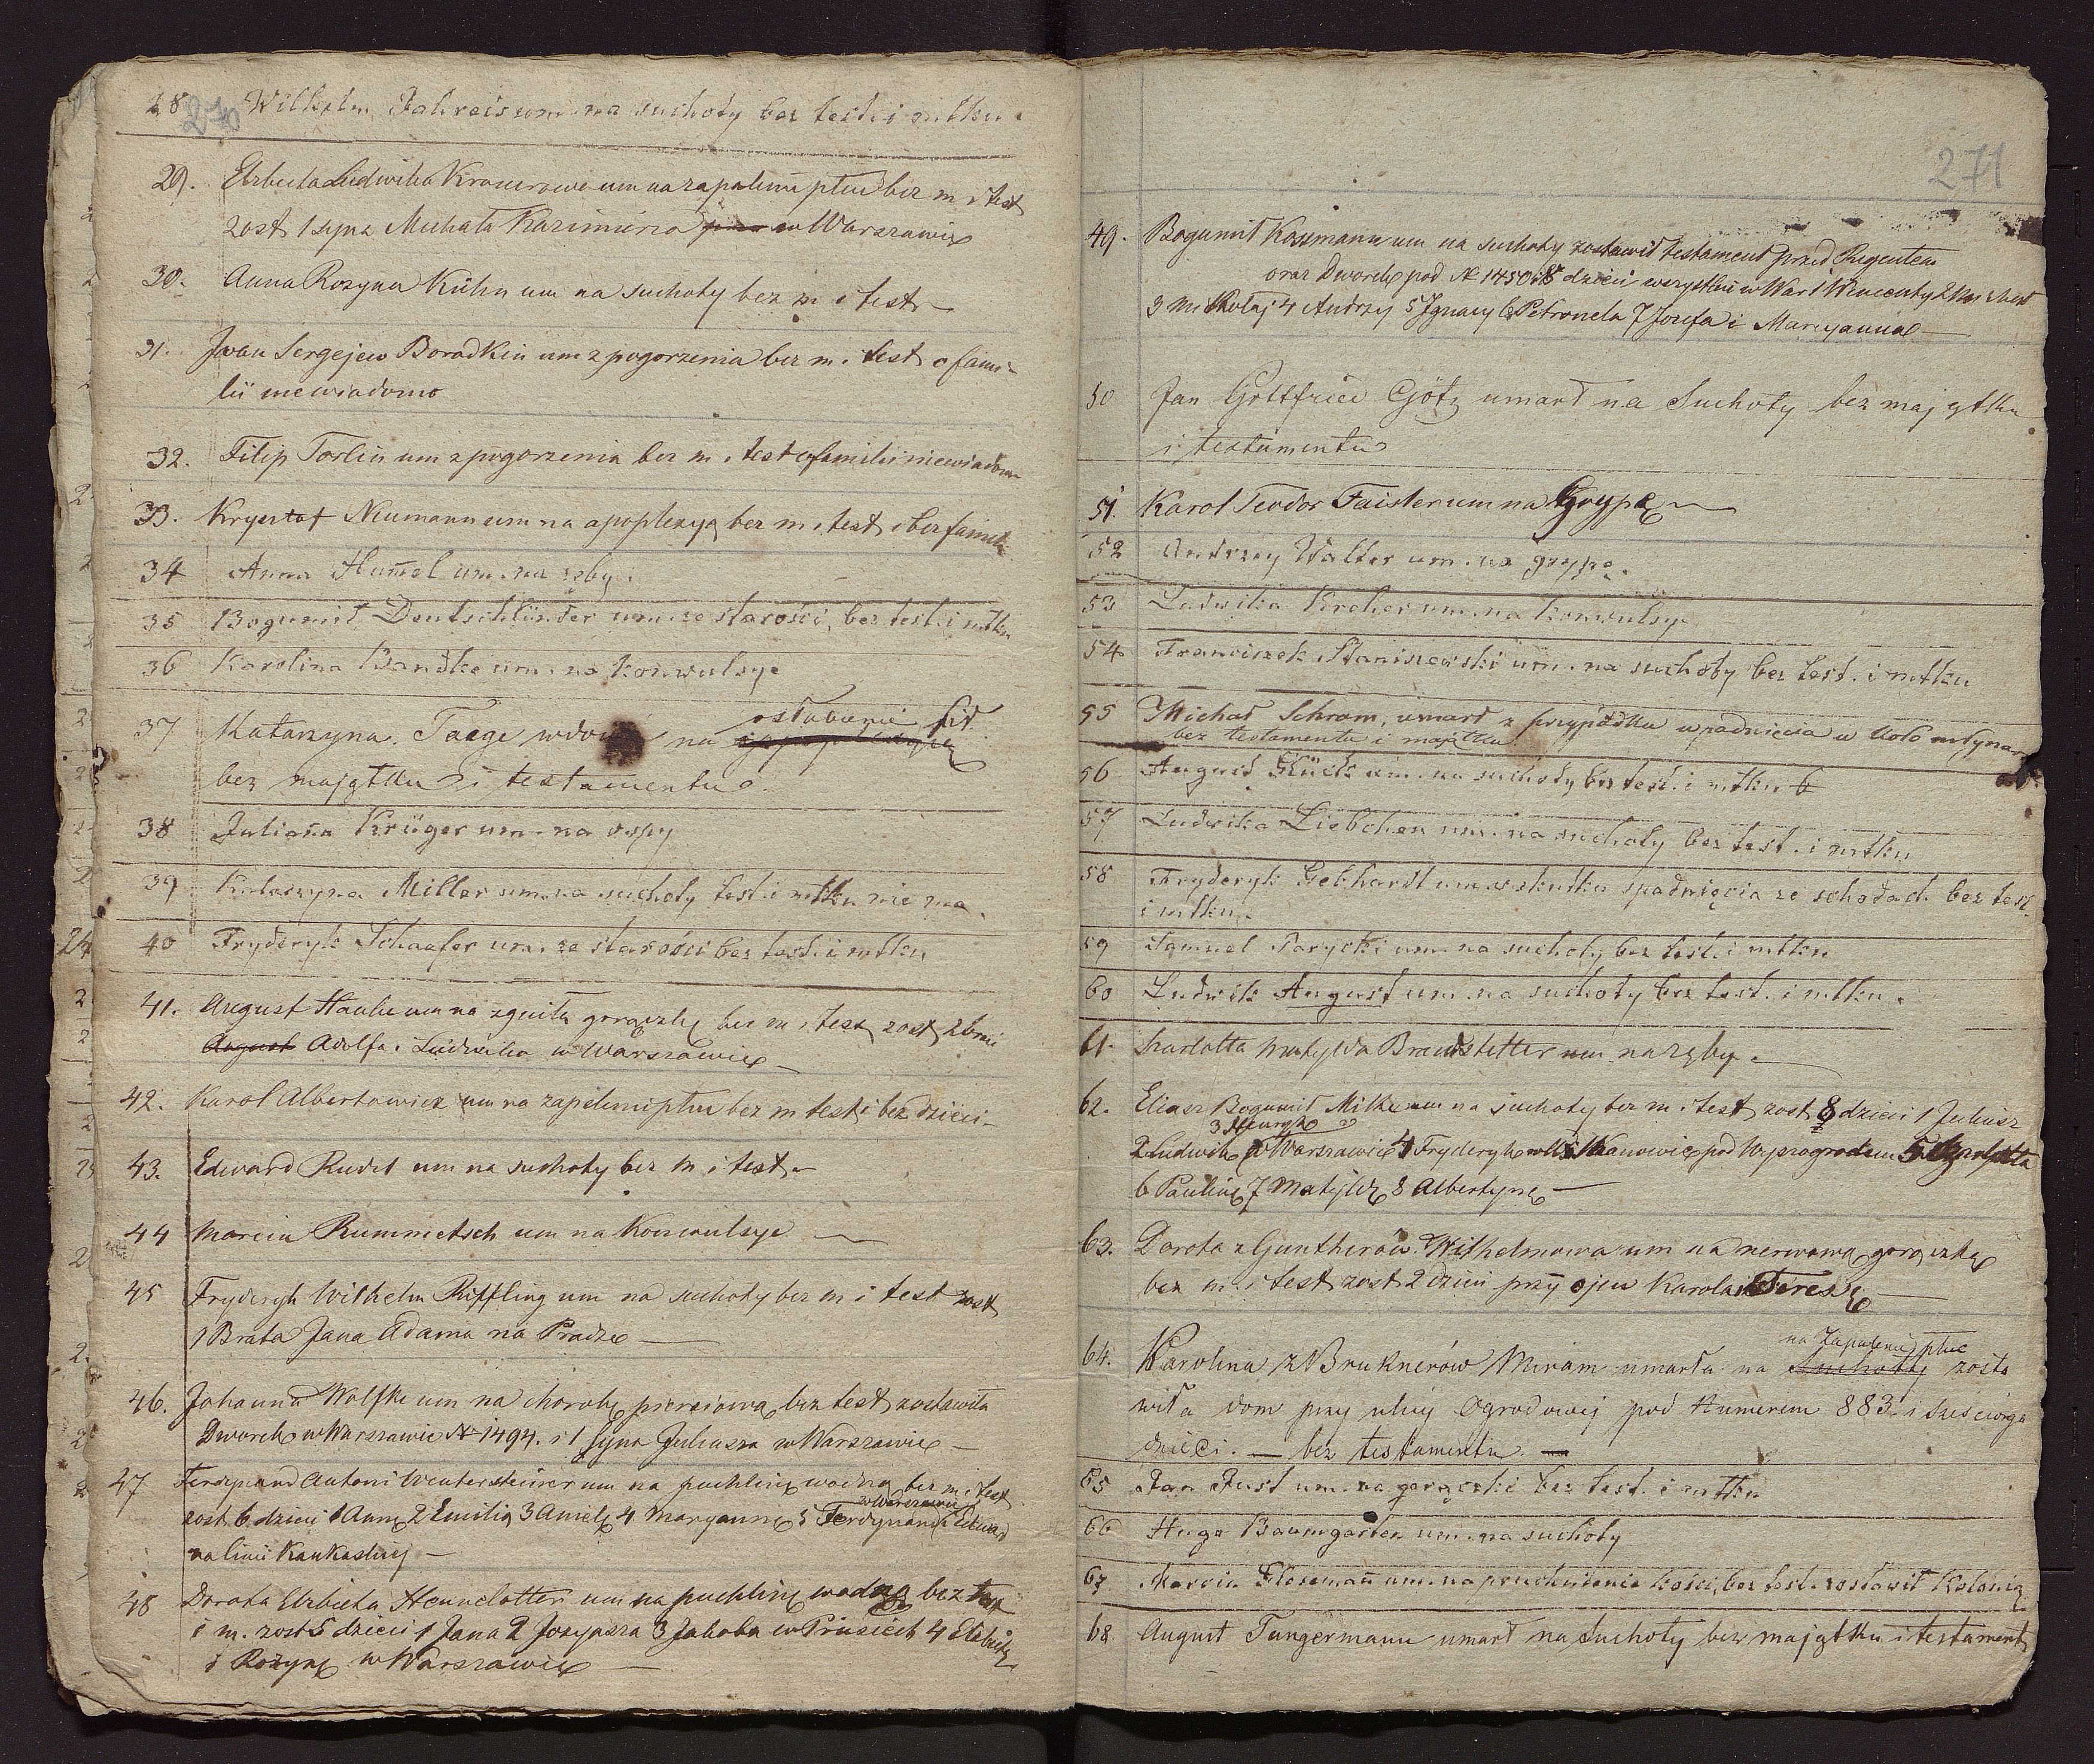 270
28 Wilhelm Fahreis um. na suchoty bez test. i mtku.
29. Elzbieta Ludwika Kromerowa um na zapalenie płuc bez m i test
zost 1 syna Michała Kazimierza w Warszawie
30. Anna Rozyna Kühn um na suchoty bez m i test
31. Jwan Sergejew Boradkin um z pogorzenia bez m. i test o fami-
lii niewiadomo
32. Filip Torlin um z pogorzenia bez m. i test o familii niewiadomo
33. Krysztof Neumann um na apoplexyą bez m. i test i bez familii
34 Anna Hum̄el um. na zęby.
35 Bogumił Deutschländer um. ze starości, bez test. i mtku
36 Karolina Bandtke um. na konwulsye
37 Katarzyna Taege wdowa na osłabienie sił
bez majątku i testamentu.
38 Julianna Krüger um. na ospy
39 Katarzyna Miller um. na suchoty test. i mtku nie ma.
40 Fryderyk Schaefer um. ze starości bez test. i mtku
41. August Hauke um na zgniłą gorączkę bez m i test zost 2 braci
August Adolfa i Ludwika w Warszawie
42. Karol Albertowicz um na zapalenie płuc bez m test i bez dzieci
43. Edward Rudel um na suchoty bez m i test
44 Marcin Rummetsch um na Konwulsye
45 Fryderyk Wilhelm Riffling um na suchoty bez m i test zost
1 Brata Jana Adama na Pradze
46. Johanna Wolfke um na chorobę piersiową bez test zostawiła
Dworek w Warszawie № 1494. i 1 Syna Juliusza w Warszawie
47 Ferdynand Antoni um na puchlinę wodną bez m. i test
w Warszawie
zost. 6 dzieci 1 Annę 2 Emilią 3 Anielę 4 Maryannę 5 Ferdynand 6 Edward
na linii Kaukaskiej
48 Dorota Elzbieta Hennelotter um na puchlinę wodną bez test
i m. zost 5 dzieci 1 Jana 2 Jozefasza 3 Jakoba w Prusiech 4 Elzbietę
5 Rozynę w Warszawie
271
49. Bogumił Kossmann um na suchoty zostawił testament przed Regentem
oraz Dworek pod № 1450 i 8 dzieci wszystkie w War 1 Wincenty 2
3 Mikołaj 4 Andrzej 5 Jgnacy 6 Petronela 7 Jozefa i Maryanna
50 Jan Gottfried Götz umarł na Suchoty bez majątku
i testamentu
51. Karol Teodor Faister um na Grypę
52 Andrzey Walter um. na grypę.
53 Ludwika Kircher um. na konwulsye
54 Franciszek Staniszewski um. na suchoty bez test. i mtku
55 Michał Schram, umarł z przypadku wpadnięcia w koło młynar
bez testamentu i majątku
56 August Glück um. na suchoty bez test. i mtku
57 Ludwika Liebchen um. na suchoty bez test. i mtku
58 Fryderyk Gebhardt um. w skutku spadnięcia ze schodach bez test.
i mtku.
59 Samuel Parycki um. na suchoty bez test. i mtku
60 Ludwik August um. na suchoty bez test. i mtku.
61. Szarlotta Matylda Brandstetter um na zęby.
62. Eliasz Bogumił Milke um na suchoty bez m i test zost 8 dzieci 1 Juliusz
3 Henryk
2 Ludwik w Warszawie 4 Fryderyk pod Wyszogrodem 5 Szarlotta
6 Paulinę 7 Matyldę 8 Albertynę
63. Dorota z Guntherów Wilhelmowa um na nerwową gorączkę
bez m. i test zost 2 dzieci przy ojcu Karola i Teresę
na Zapalenie płuc
64. Karolina z Bruknerów Miram umarła na Suchoty zosta
wiła dom przy ulicy Ogrodowej pod Numerem 883 i sześcioro
dzieci. — bez testamentu. —
65 Jan Just um. na gorączki bez test. i mtku
66 Hugo Baumgarten um. na suchoty
67 Marcin um. na pruchnienie kości, bez test. zostawił Kolonią
68 August Tungermann umarł na Suchoty bez majątku i testament